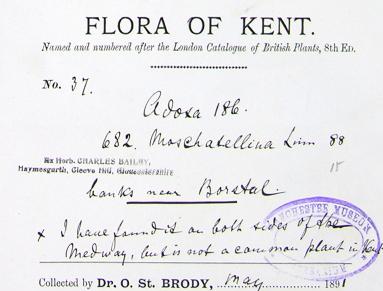 FLORA OF KENT.
Named and numbered after the London Catalogue of British Plants, 8th Ed.
No. 37.
Adoxa 186.
682. Moschatellina Linn 88
Ex Herb. CHARLES BAILEY,
Haymesgarth, Cleeve Hill, Gloucestershire
15
banks near Borstal.
x I have found it on both sides of the
Medway, but is not a common plant in Kent
MANCHESTER MUSEUM
Collected by Dr. O. St. BRODY, May 1891